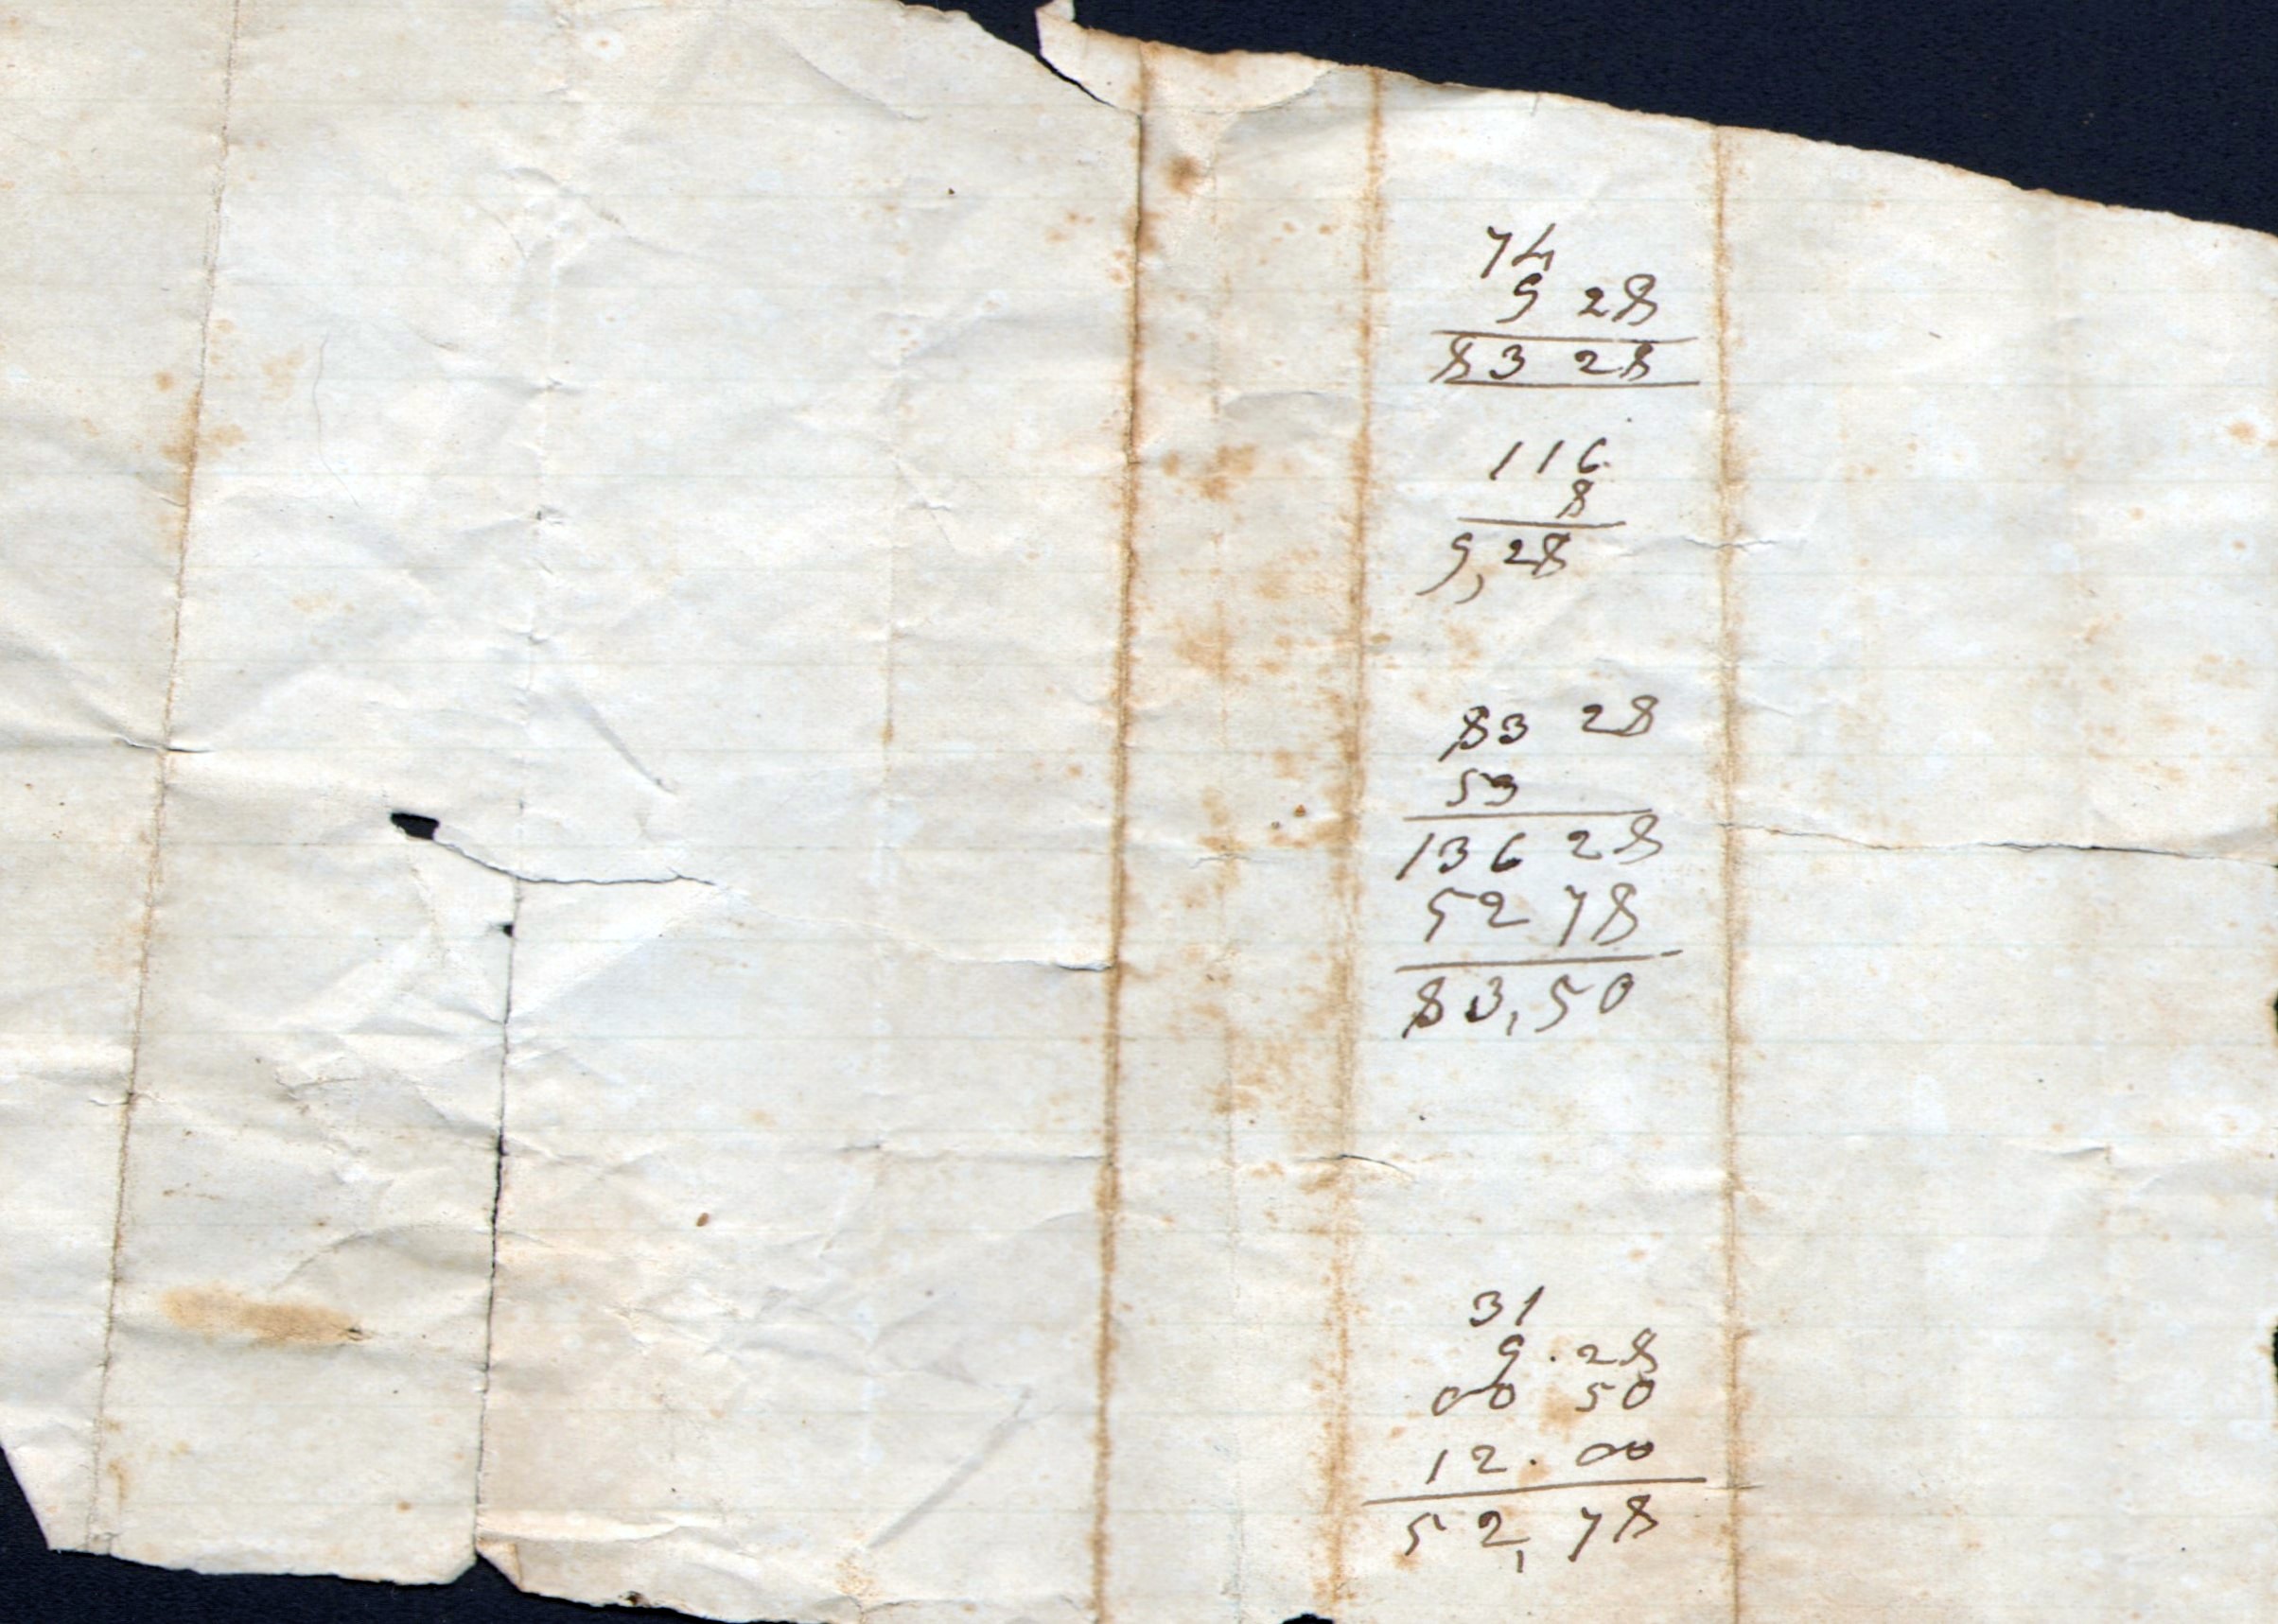 74
9 28
83 28
116
8
9,28
83 28
53
136 28
52 78
83,50
31
9.28
00 50
12.00
52,78